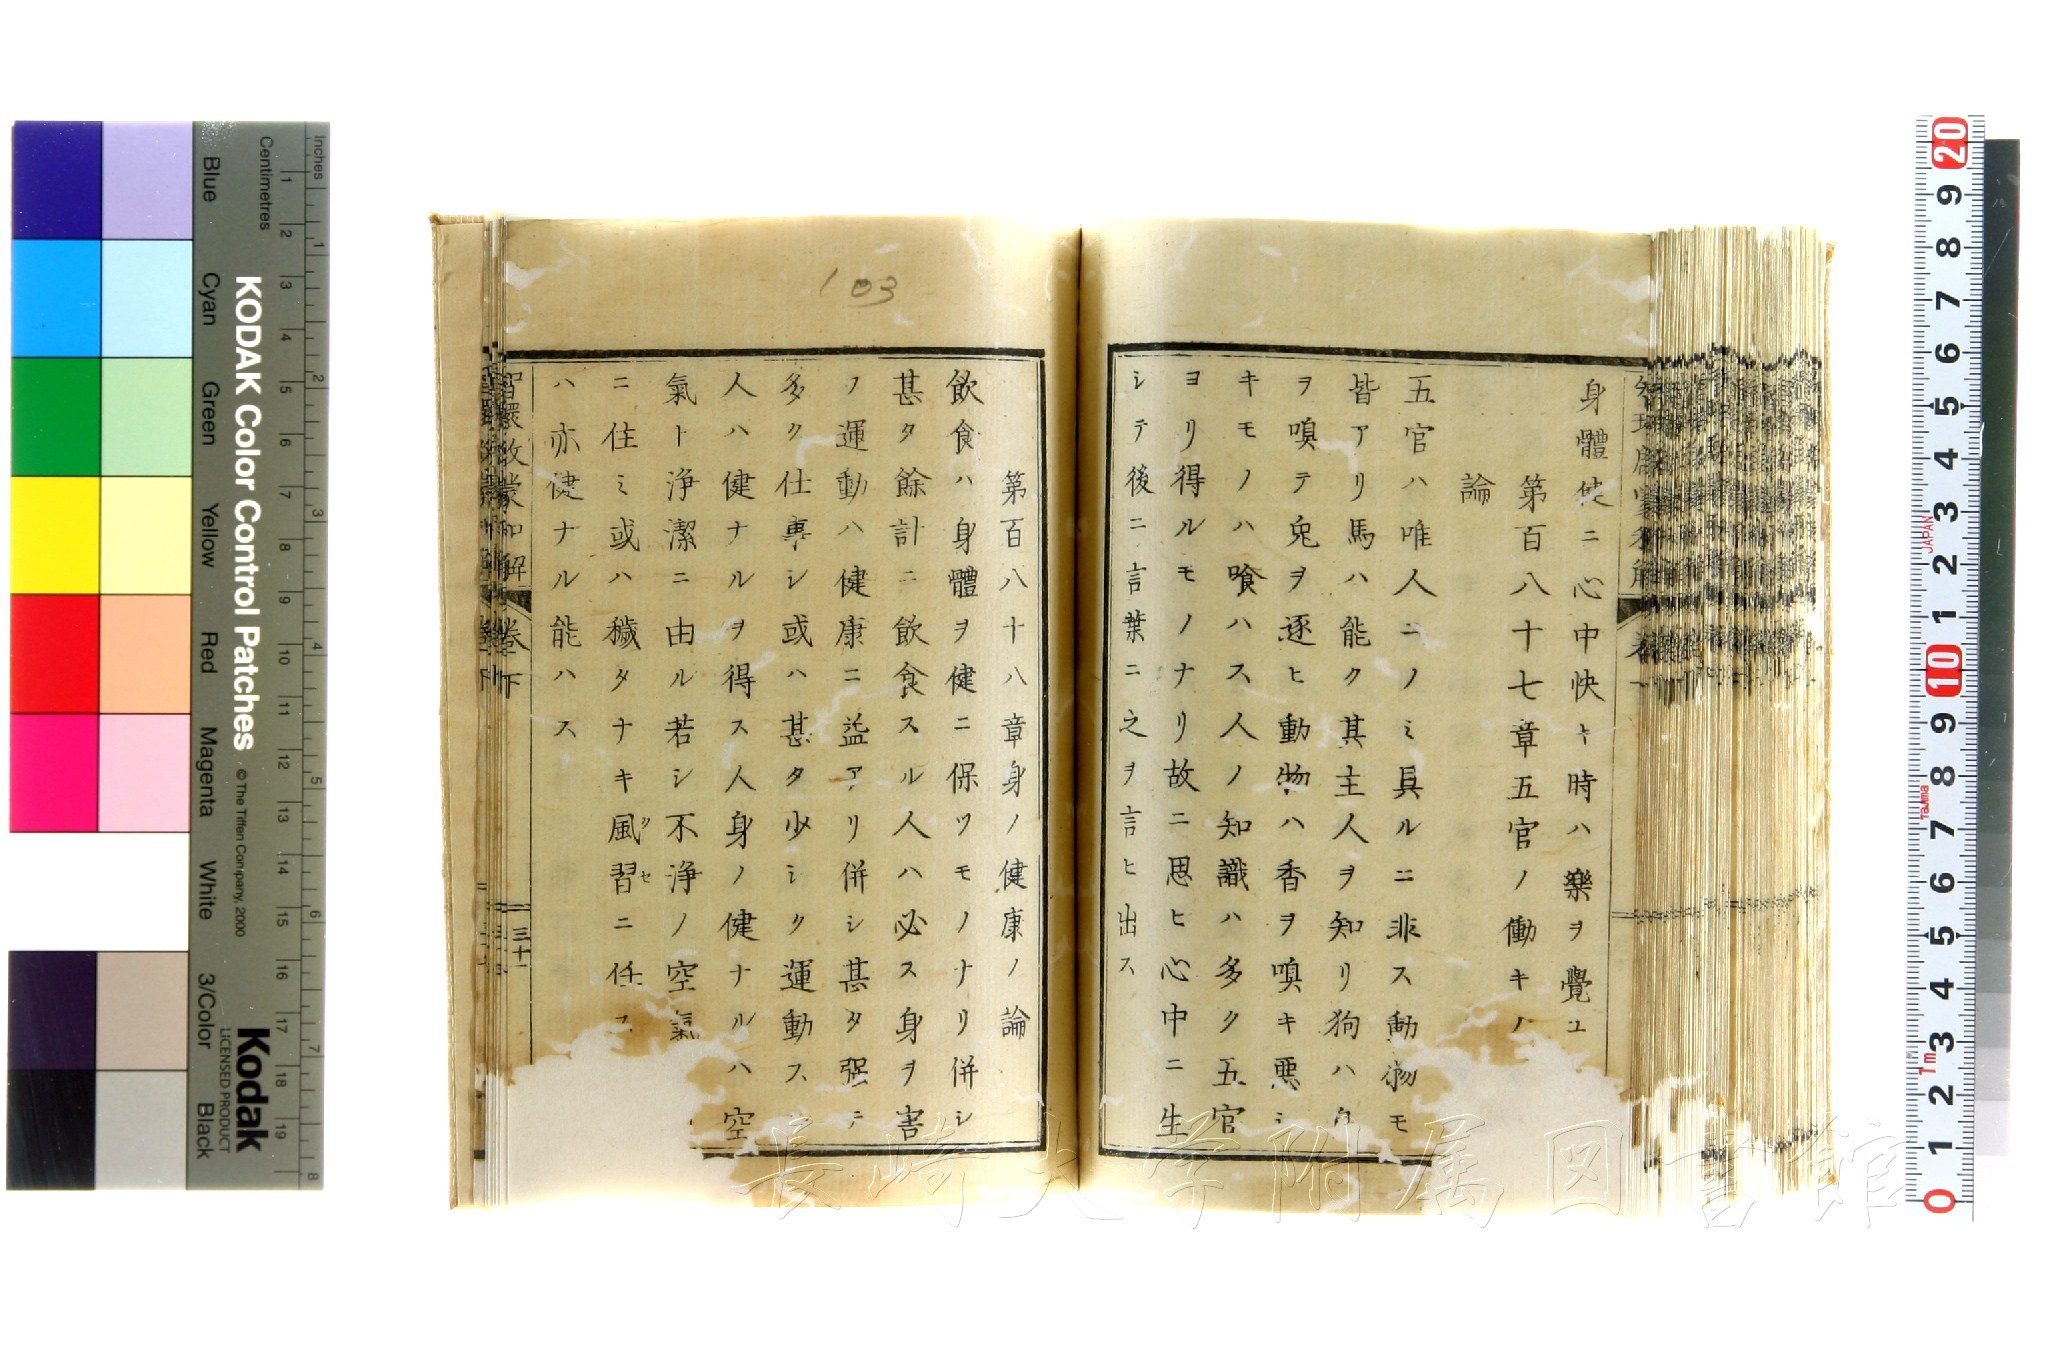 身體使ニ心中快キ時ハ樂ヲ覺ユ
第百八十七章五官ノ働キノ
論
五官ハ唯人ニノミ具ルニ非ス動物モ
皆アリ馬ハ能ク其主人ヲ知リ狗ハ
ヲ嗅テ兎ヲ逐ヒ動物ハ香ヲ嗅キ悪シ
キモノハ喰ハス人ノ知識ハ多ク五官
ヨリ得ルモノナリ故ニ思ヒ心中ニ生
シテ後ニ言葉ニ之ヲ言ヒ出ス
103
第百八十八章身ノ健康ノ論
飲食ハ身體ヲ健ニ保ツモノナリ併シ
甚タ餘計ニ飲食スル人ハ必ス身ヲ害
ノ運動ハ健康ニ益アリ併シ甚タ强テ
多ク仕事シ或ハ甚タ少シク運動ス
人ハ健ナルヲ得ス人身ノ健ナルハ空
氣ト浄潔ニ由ル若シ不浄ノ空氣
ニ住ミ或ハ穢タナキ風習ニ任
クセ
ハ亦健ナル能ハス
智環啟蒙和解 卷下 三十一
KODAK Color Control Patches
© The Tiffen Company, 2000
Kodak
LICENSED PRODUCT
Inches
Centimetres
Blue
Cyan
Green
Yellow
Red
Magenta
White
3/Color
Black
1 2 3 4 5 6 7 8 9 10 11 12 13 14 15 16 17 18 19
1 2 3 4 5 6 7 8
20 9 8 7 6 5 4 3 2 1 10 9 8 7 6 5 4 3 2 1 0
JAPAN
Tajima
1m
長崎大学附属図書館